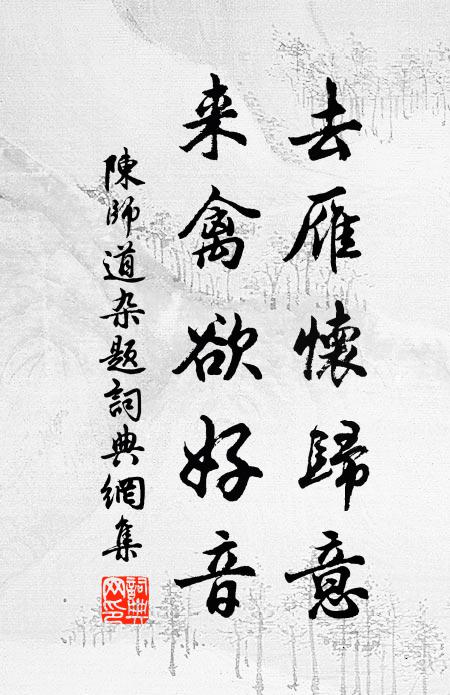 去雁懷歸意
来禽欲好音
陳師道杂题詞典網集